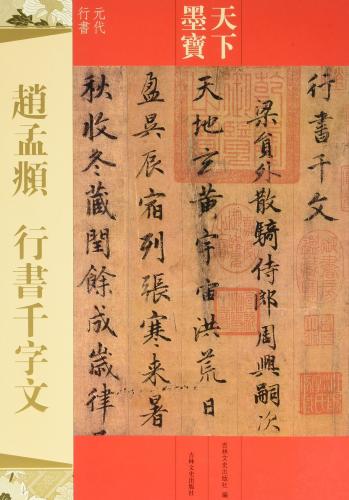 元代
行書
天下
墨寶
趙孟頫 行書千字文
行書千文
梁員外散騎侍郎周興嗣次
天地玄黃宇宙洪荒日
盈昃辰宿列張寒来暑
秋收冬藏閏餘成歲律
吉林文史出版社 編
吉林文史出版社